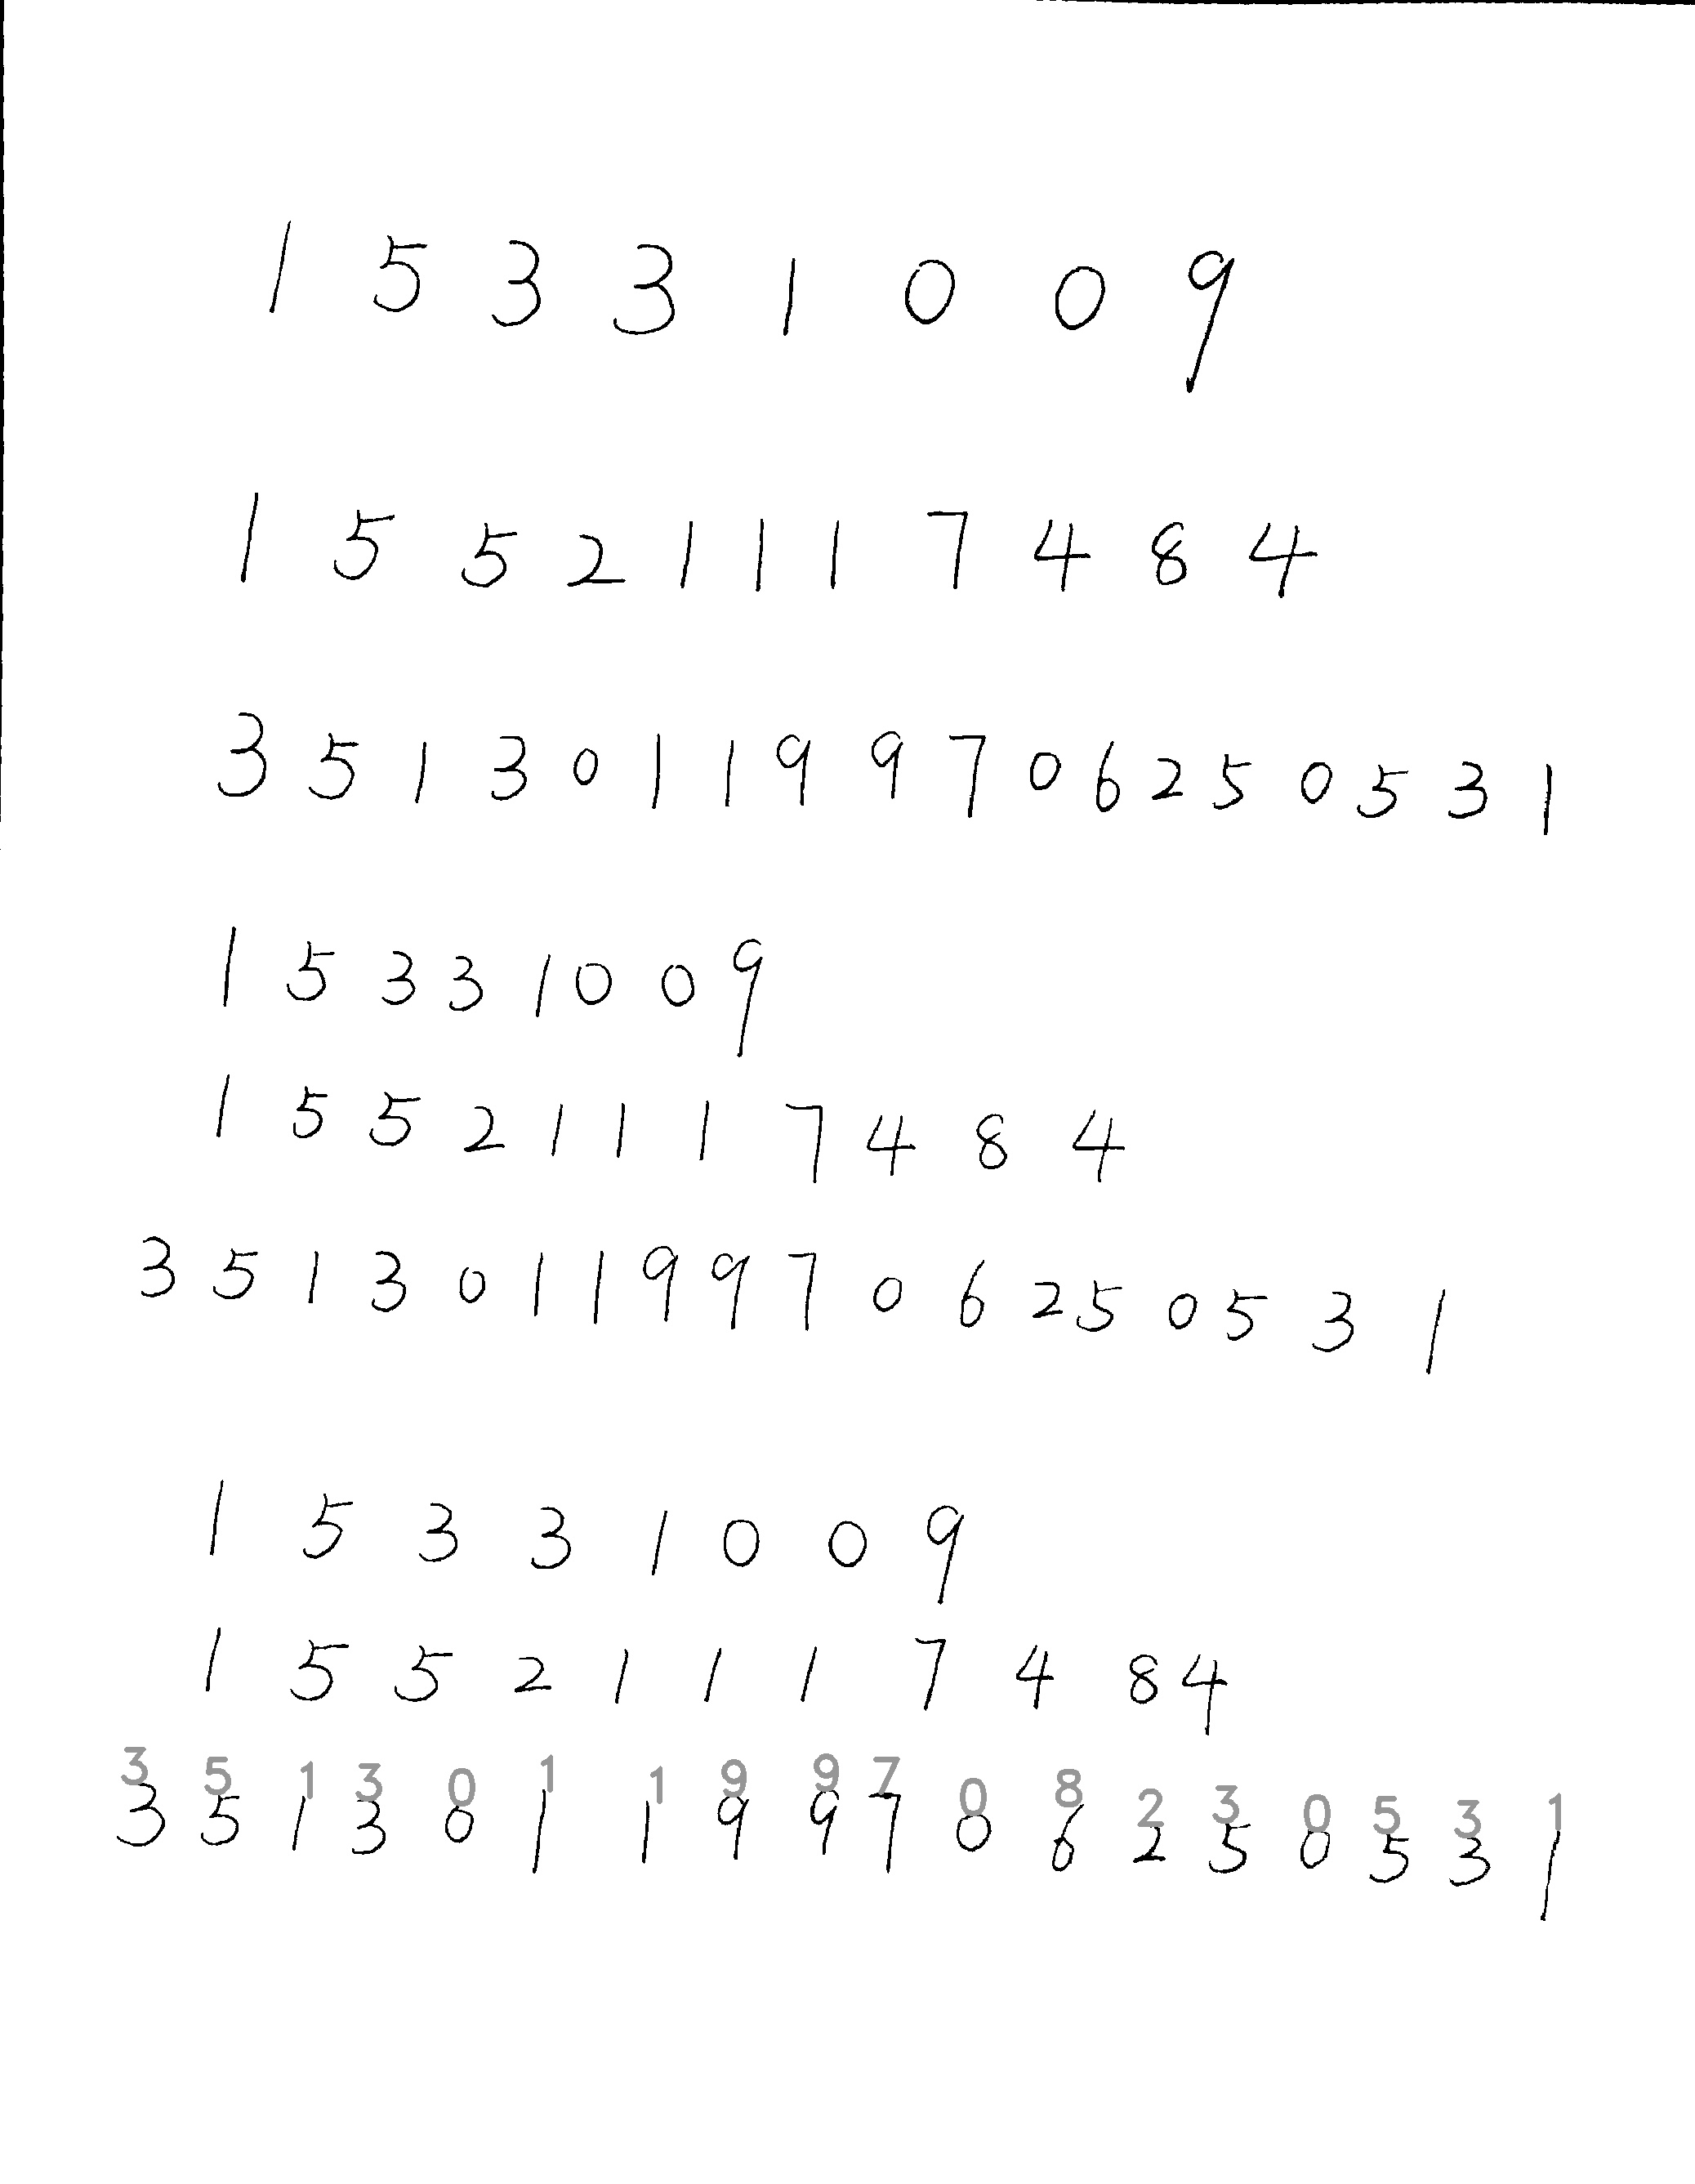 1 5 3 3 1 0 0 9
1 5 5 2 1 1 1 7 4 8 4
3 5 1 3 0 1 1 9 9 7 0 6 2 5 0 5 3 1
1 5 3 3 1 0 0 9
1 5 5 2 1 1 1 7 4 8 4
3 5 1 3 0 1 1 9 9 7 0 6 2 5 0 5 3 1
1 5 3 3 1 0 0 9
1 5 5 2 1 1 1 7 4 8 4
3 5 1 3 0 1 1 9 9 7 0 8 2 3 0 5 3 1
3 5 1 3 0 1 1 9 9 7 0 6 2 5 0 5 3 1